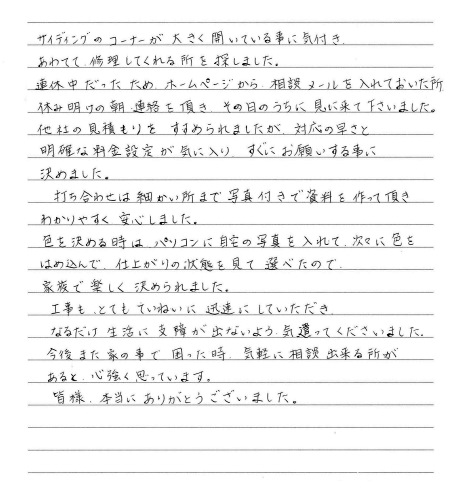 サイディングのコーナーが大きく開いている事に気付き、
あわてて、修理してくれる所を探しました。
連休中だったため、ホームページから、相談メールを入れておいた所
休み明けの朝、連絡を頂き、その日のうちに見に来て下さいました。
他社の見積もりを、すすめられましたが、対応の早さと
明確な料金設定が気に入り、すぐにお願いする事に
決めました。
打ち合わせは細かい所まで写真付きで資料を作って頂き
わかりやすく、安心しました。
色を決める時は、パソコンに自宅の写真を入れて、次々に色を
はめ込んで、仕上がりの状態を見て選べたので、
家族で楽しく決められました。
工事も、とてもていねいに迅速にしていただき、
なるだけ生活に支障が出ないよう、気遣ってくださいました。
今後また家の事で困った時、気軽に相談出来る所が
あると、心強く思っています。
皆様、本当にありがとうございました。